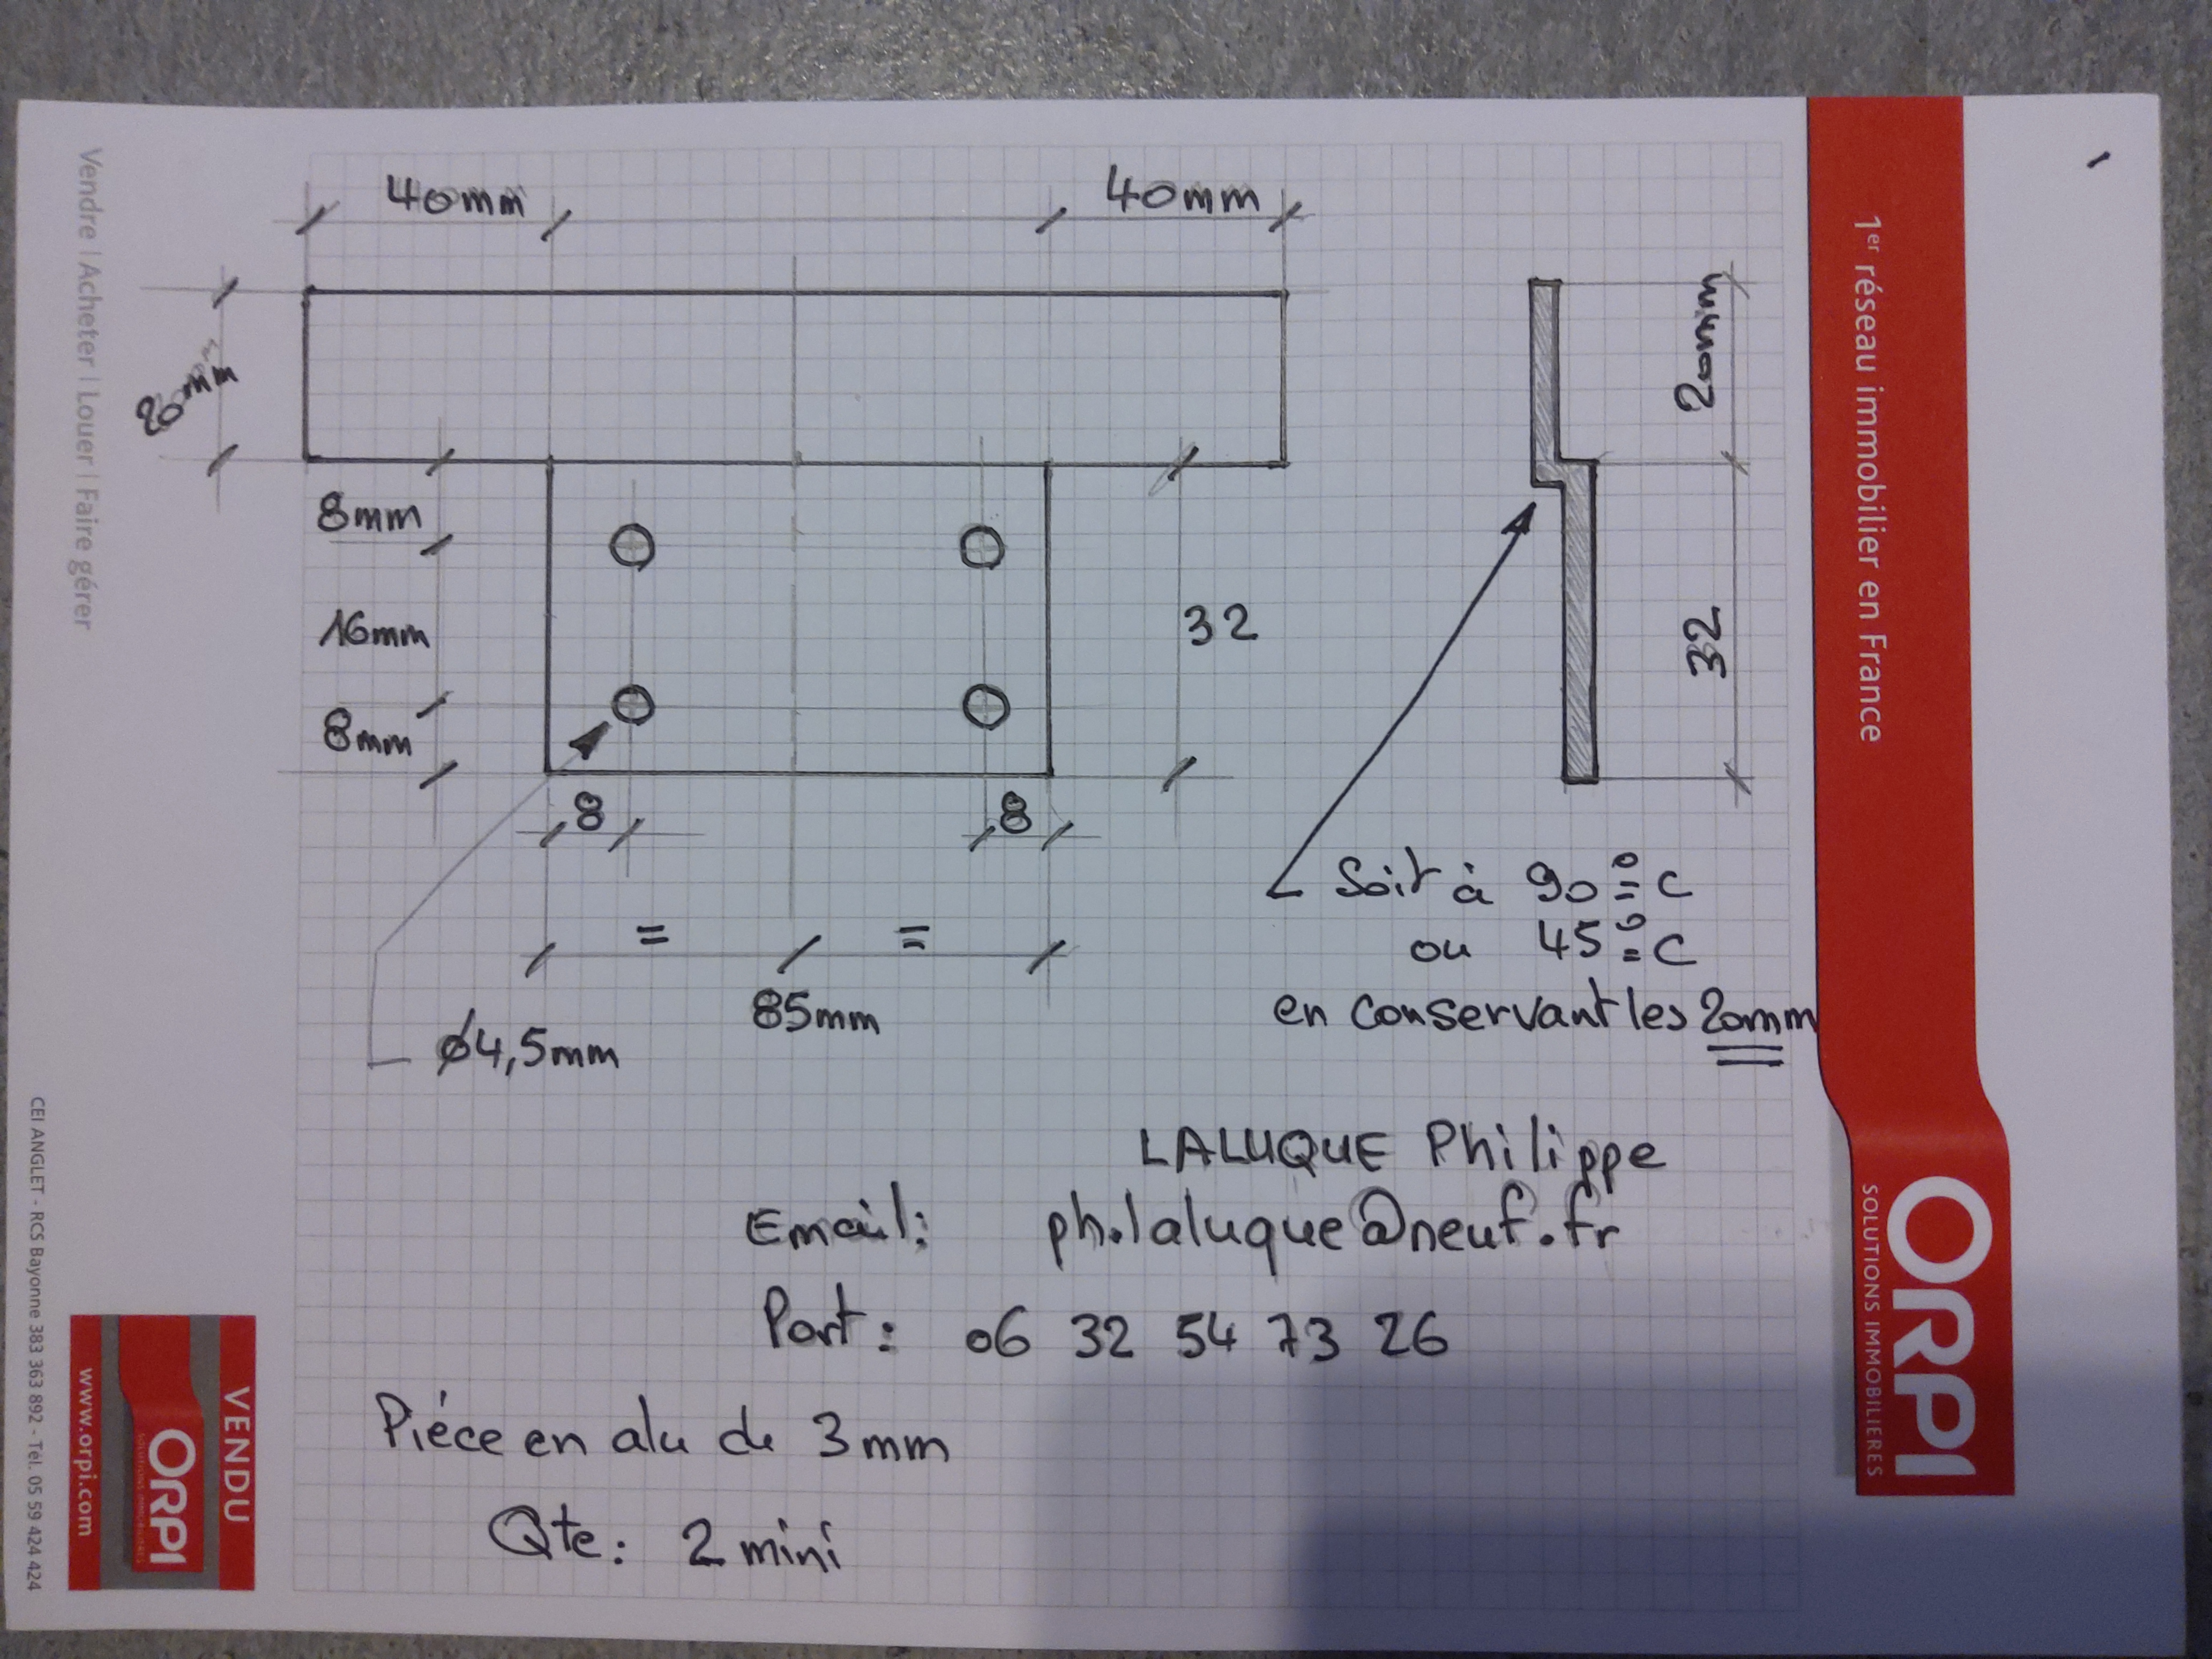 40mm
40mm
20mm
20mm
8mm
16mm
32
32
8mm
8
8
=
=
85mm
ø4,5mm
Soit à 90° C
ou 45° C
en conservant les 20mm
LALUQUE Philippe
Email: ph.laluque@neuf.fr
Port: 06 32 54 73 26
Piéce en alu de 3mm
Qte: 2 mini
Vendre | Acheter | Louer | Faire gérer
CEI ANGLET - RCS Bayonne 383 363 892 - Tél. 05 59 424 424
VENDU
ORPI
SOLUTIONS IMMOBILIERES
www.orpi.com
1er réseau immobilier en France
ORPI
SOLUTIONS IMMOBILIERES